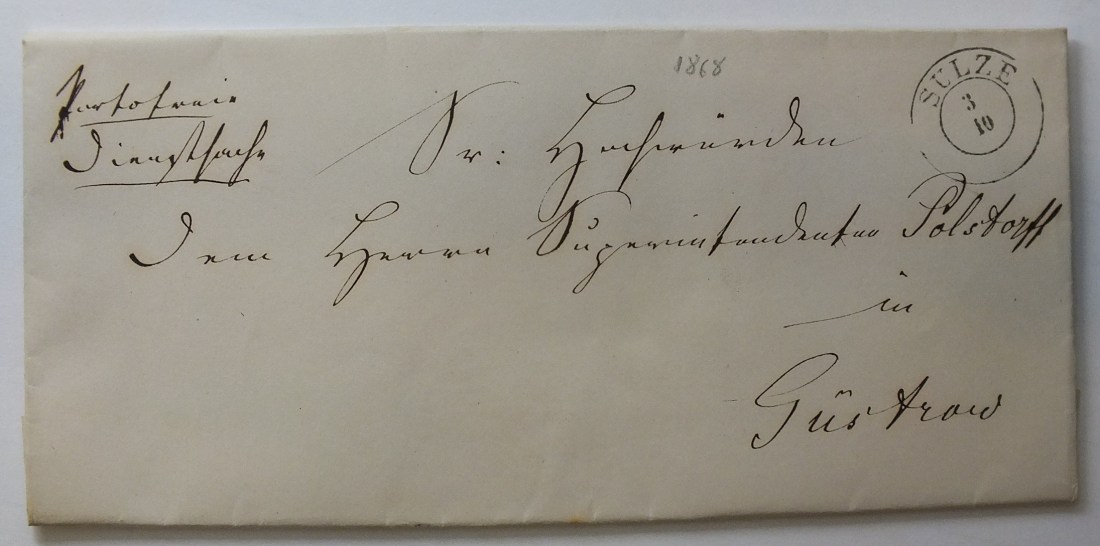 1868
SULZE
3
10
Portofreie
Dienstsache
Sr: Hochwürden
Dem Herrn Superintendenten Polstorff
in
Güstrow